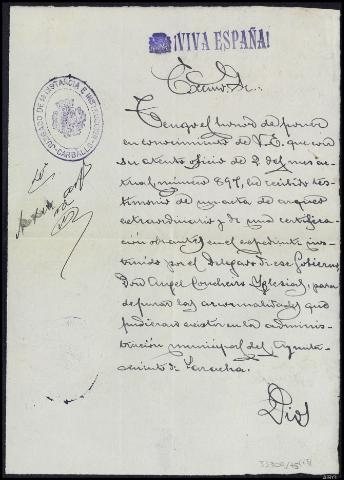 ¡VIVA ESPAÑA!
JUZGADO DE 1ª INSTANCIA E INSTRUCCIÓN
CARBALLO
Excmo. Sr.:
Tengo el honor de poner
en conocimiento de V.E. que con
su atento oficio de 2 del mes ac-
tual número 897, he recibido tes-
timonio de un acta de arqueo
extraordinario y de una certifica-
ción obrantes en el expediente ins-
truido por el Delegado de ese Gobierno,
Don Angel Concheiro Yglesias, para
depurar las anormalidades que
pudieran existir en la adminis-
tración municipal del Ayunta-
miento de Laracha.
Dios